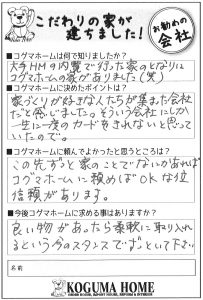 こだわりの家が
建ちました!
お勧めの
会社
■コグマホームは何で知りましたか?
大手HMの内覧で行った家のとなりに
コグマホームの家がありました(笑)
■コグマホームに決めたポイントは?
家づくりが好きな人たちが集まった会社
だと感じました。そういう会社にしか
一生に一度のカードをきれないと思って
いたので。
■コグマホームに頼んでよかったと思うところは?
この先ずっと家のことでなにかあれば
コグマホームに頼めばOKな位
信頼があります。
■今後コグマホームに求める事はありますか?
良い物があったら柔軟に取り入れ
るという今のスタンスでずっといて下さい。
名前
KOGUMA HOME